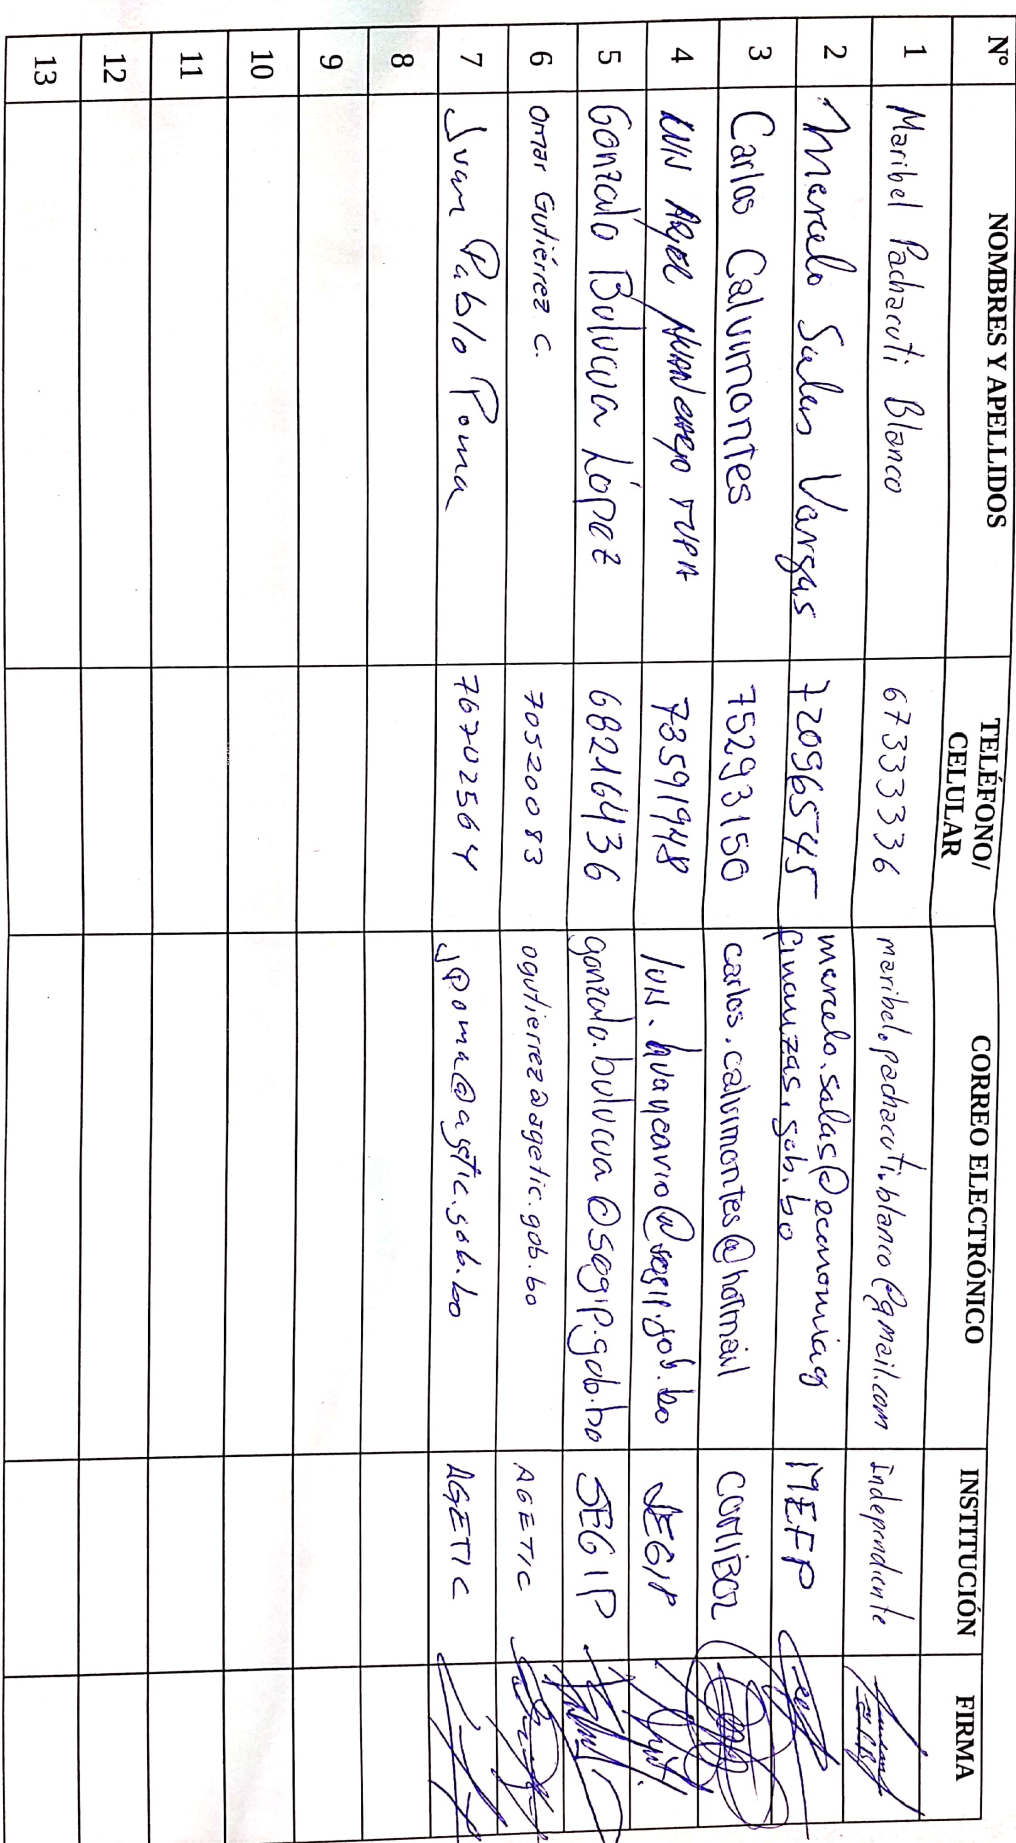 N° NOMBRES Y APELLIDOS TELÉFONO/ CELULAR CORREO ELECTRÓNICO INSTITUCIÓN FIRMA
1 Maribel Pachacuti Blanco 67333336 maribel.pachacuti.blanco@gmail.com Independiente
2 Marcelo Salas Vargas 72096545 marcelo.salas@economiay
finanzas.gob.bo MEFP
3 Carlos Calvimontes 75293150 carlos.calvimontes@hotmail COMIBOL
4 73591948 SEGIP
5 Gonzalo Bulucua López 68216436 gonzalo.bulucua@segip.gob.bo SEGIP
6 Omar Gutiérrez C. 70520083 ogutierrez@agetic.gob.bo AGETIC
7 Juan Pablo Poma 76702564 jpoma@agetic.gob.bo AGETIC
8
9
10
11
12
13